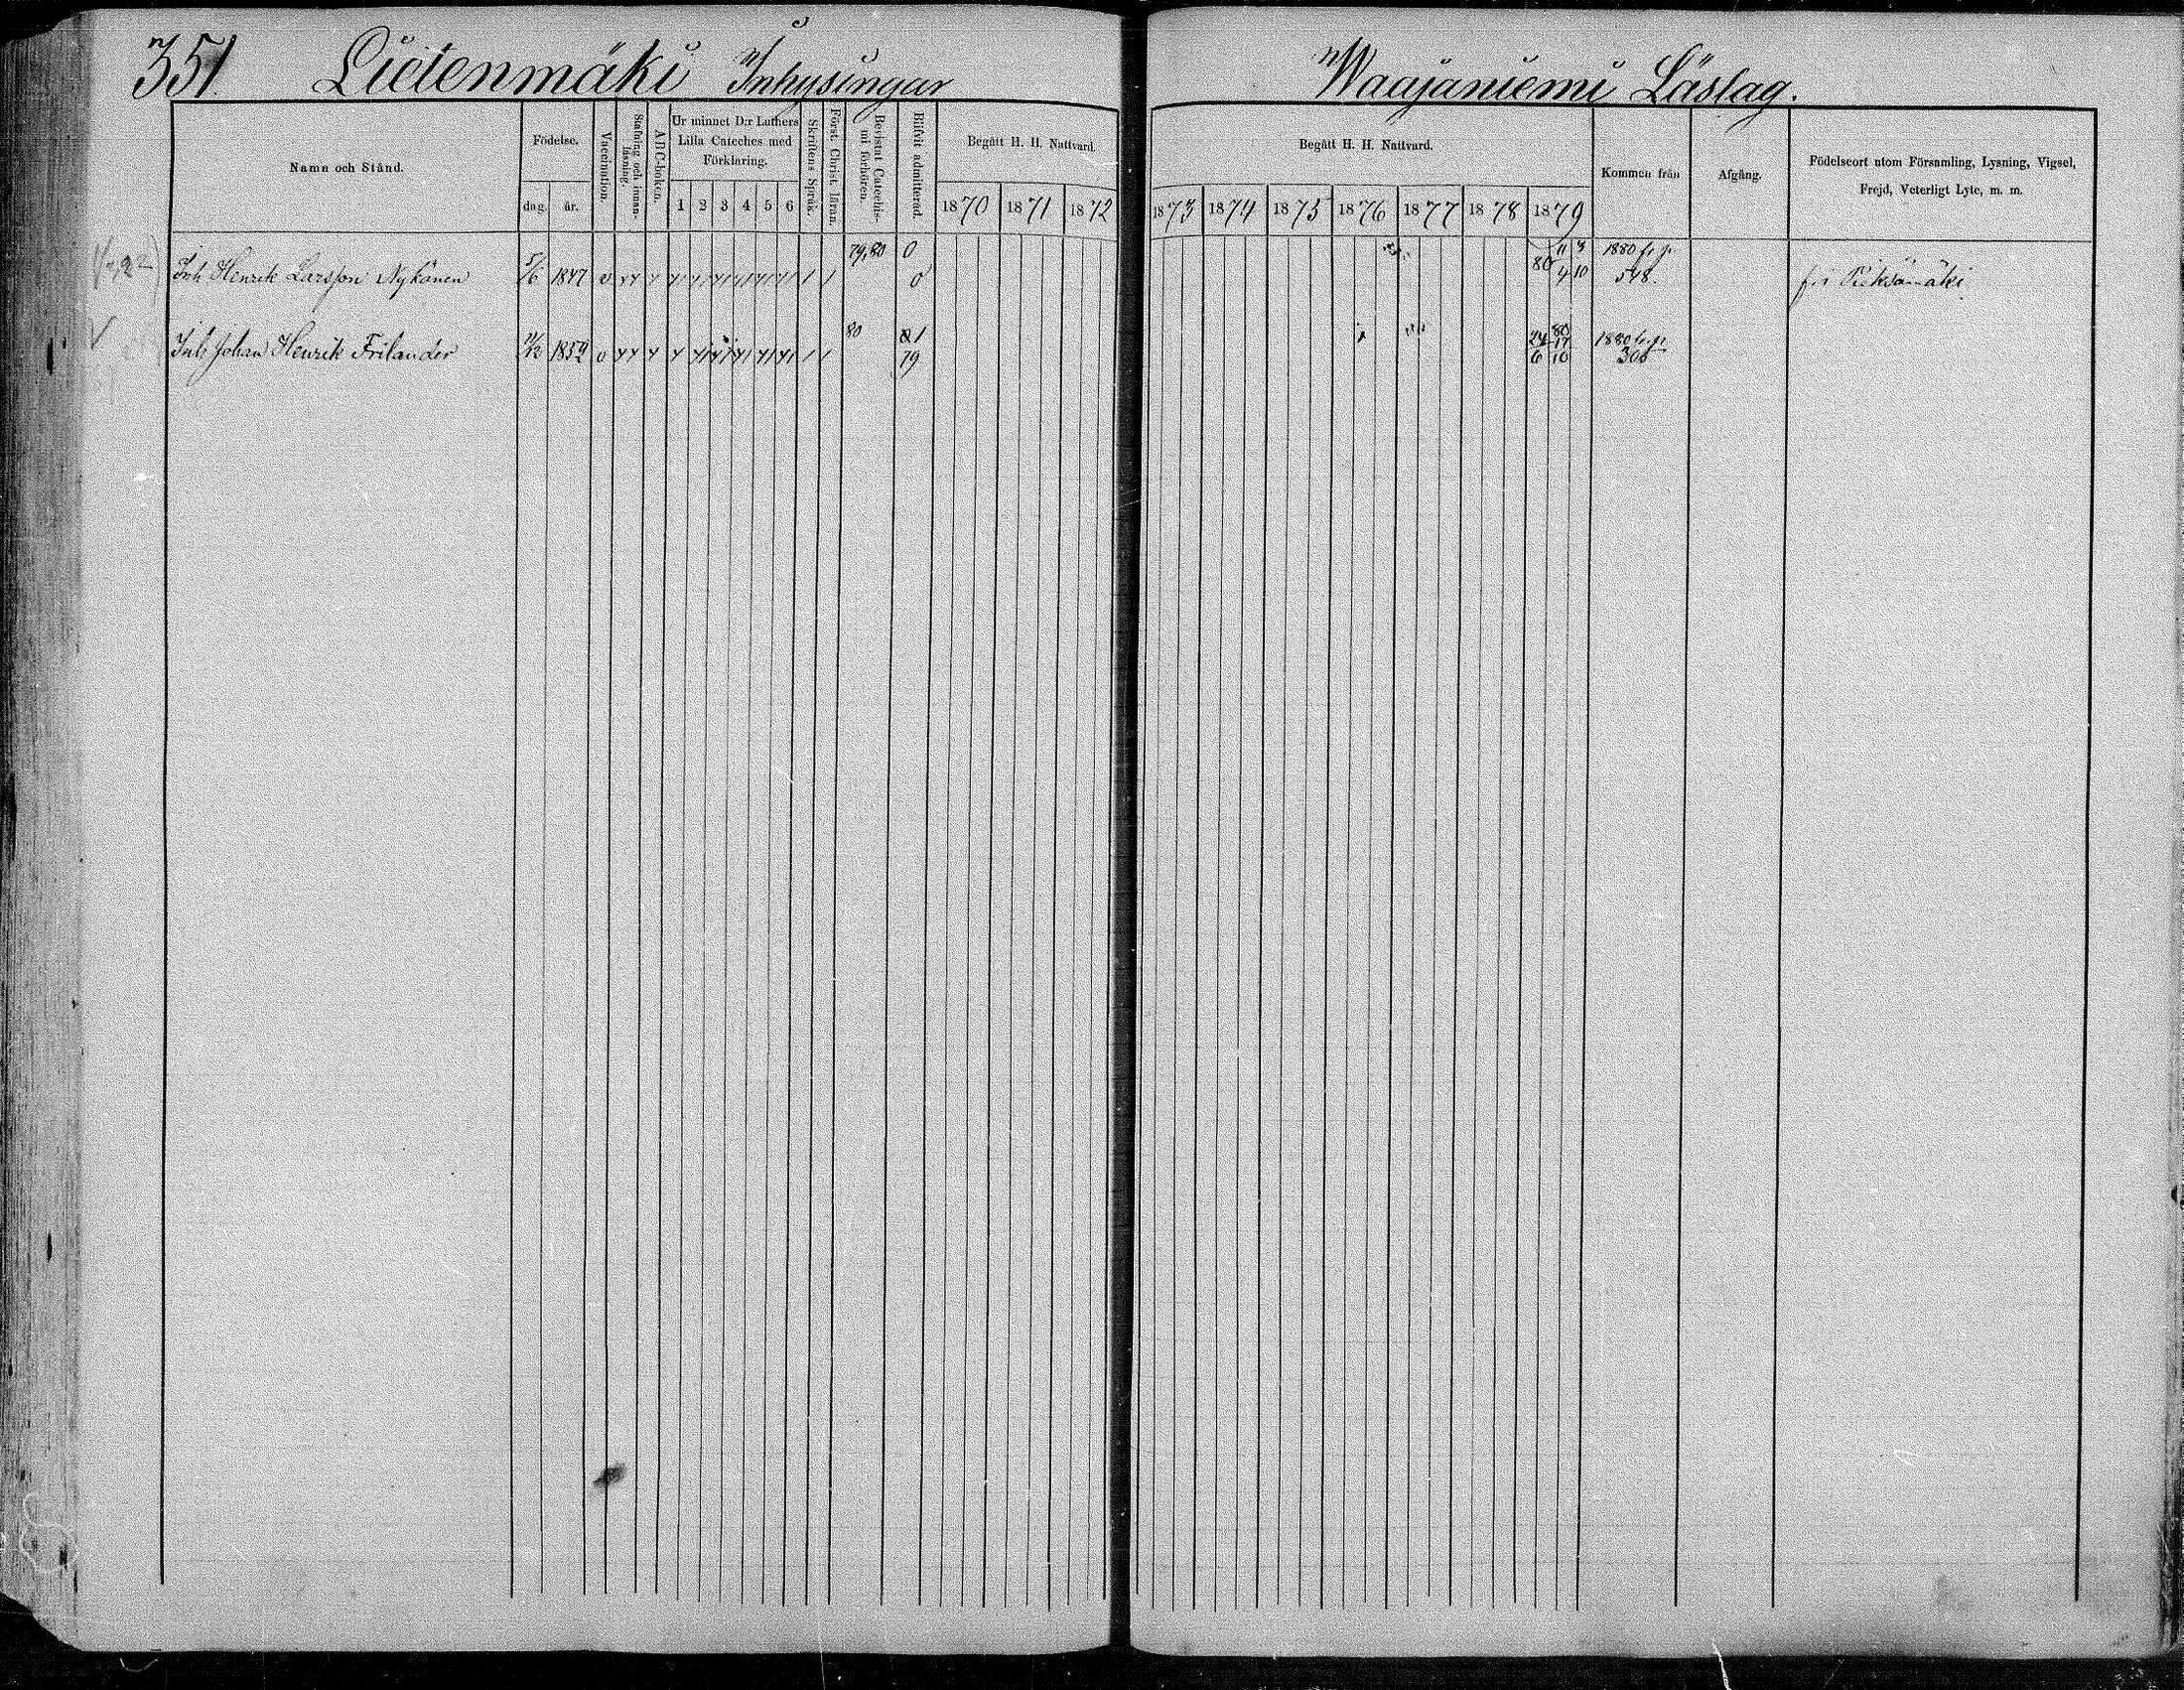 351. Lietenmäki Inhysingar
Waajaniemi Läslag.
Namn och Stånd.
Födelse.
dag. år.
Vaccination.
Stafning och innan-läsning.
ABC-boken.
Ur minnet D:r Luthers
Lilla Cateches med
Förklaring.
1 2 3 4 5 6
Skriftens Språk.
Först. Christ. läran.
Bevistat Catechis-mi förhören.
Blifvit admitterad.
Begått H. H. Nattvard.
1870 1871 1872
Begått H. H. Nattvard.
1873 1874 1875 1876 1877 1878 1879
Kommen från
Afgång.
Födelseort utom Församling, Lysning, Vigsel,
Frejd, Veterligt Lyte, m. m.
79,80 0 11 3 1880 fr. p.
Inh. Henrik Larsson Nykänen 5/6 1847 0 80 4 10 548. fr. Pieksämäki
80 21 80 1880 fr. p.
Inh. Johan Henrik Frilander 1859 79 24 17 6 10 306